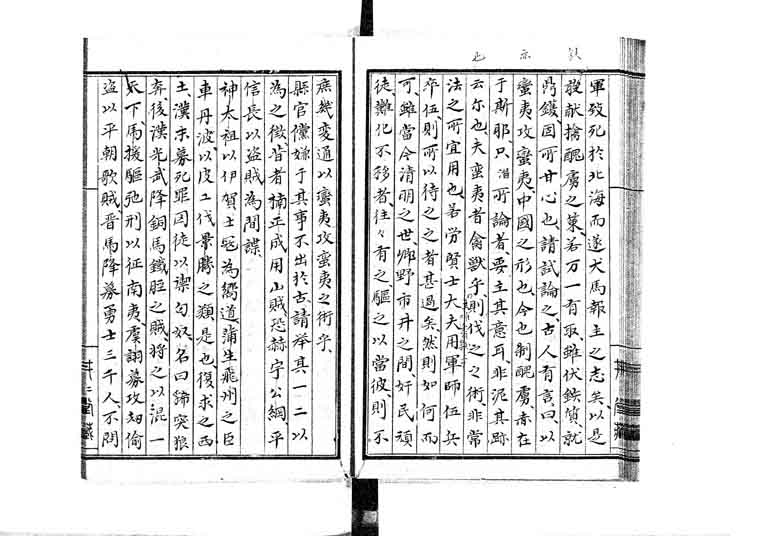 軍歿死於北海而遂犬馬報主之志矣以是
投献擒醜虜之策若万一有取雖伏鈇質就
鼎鑊固所甘心也請試論之古人有言曰以
蛮夷攻蛮夷中國之形也今也制醜虜亦在
于斯耶只淄所論者要主其意耳非泥其跡
云尓也夫蛮夷者禽獣乎則伐之之術非常
法之所宜用也若労賢士大夫用軍師伍兵
卒伍則所以待之之者甚過矣然則如何而
可雖當今清明之世鄉野市井之間奸民頑
徒難化不移者往々有之驅之以當彼則不
庶幾変通以蛮夷攻蛮夷之術乎
縣官儻嫌于其事不出於古請举其一二以
為之徴昔者楠正成用山賊恐赫字公綱平
信長以盗賊為間諜
神太祖以伊賀士冦為嚮道蒲生飛州之臣
車丹波以皮工伐景勝之類是也復求之西
土漢末募死罪囚徒以禦匈奴名曰豬突狼
奔後漢光武降銅馬鐵脛之賊将之以混一
天下馬援驅弛刑以征南夷虞詡募攻劫偷
盗以平朝歌賊晋馬隆募勇士三千人不問